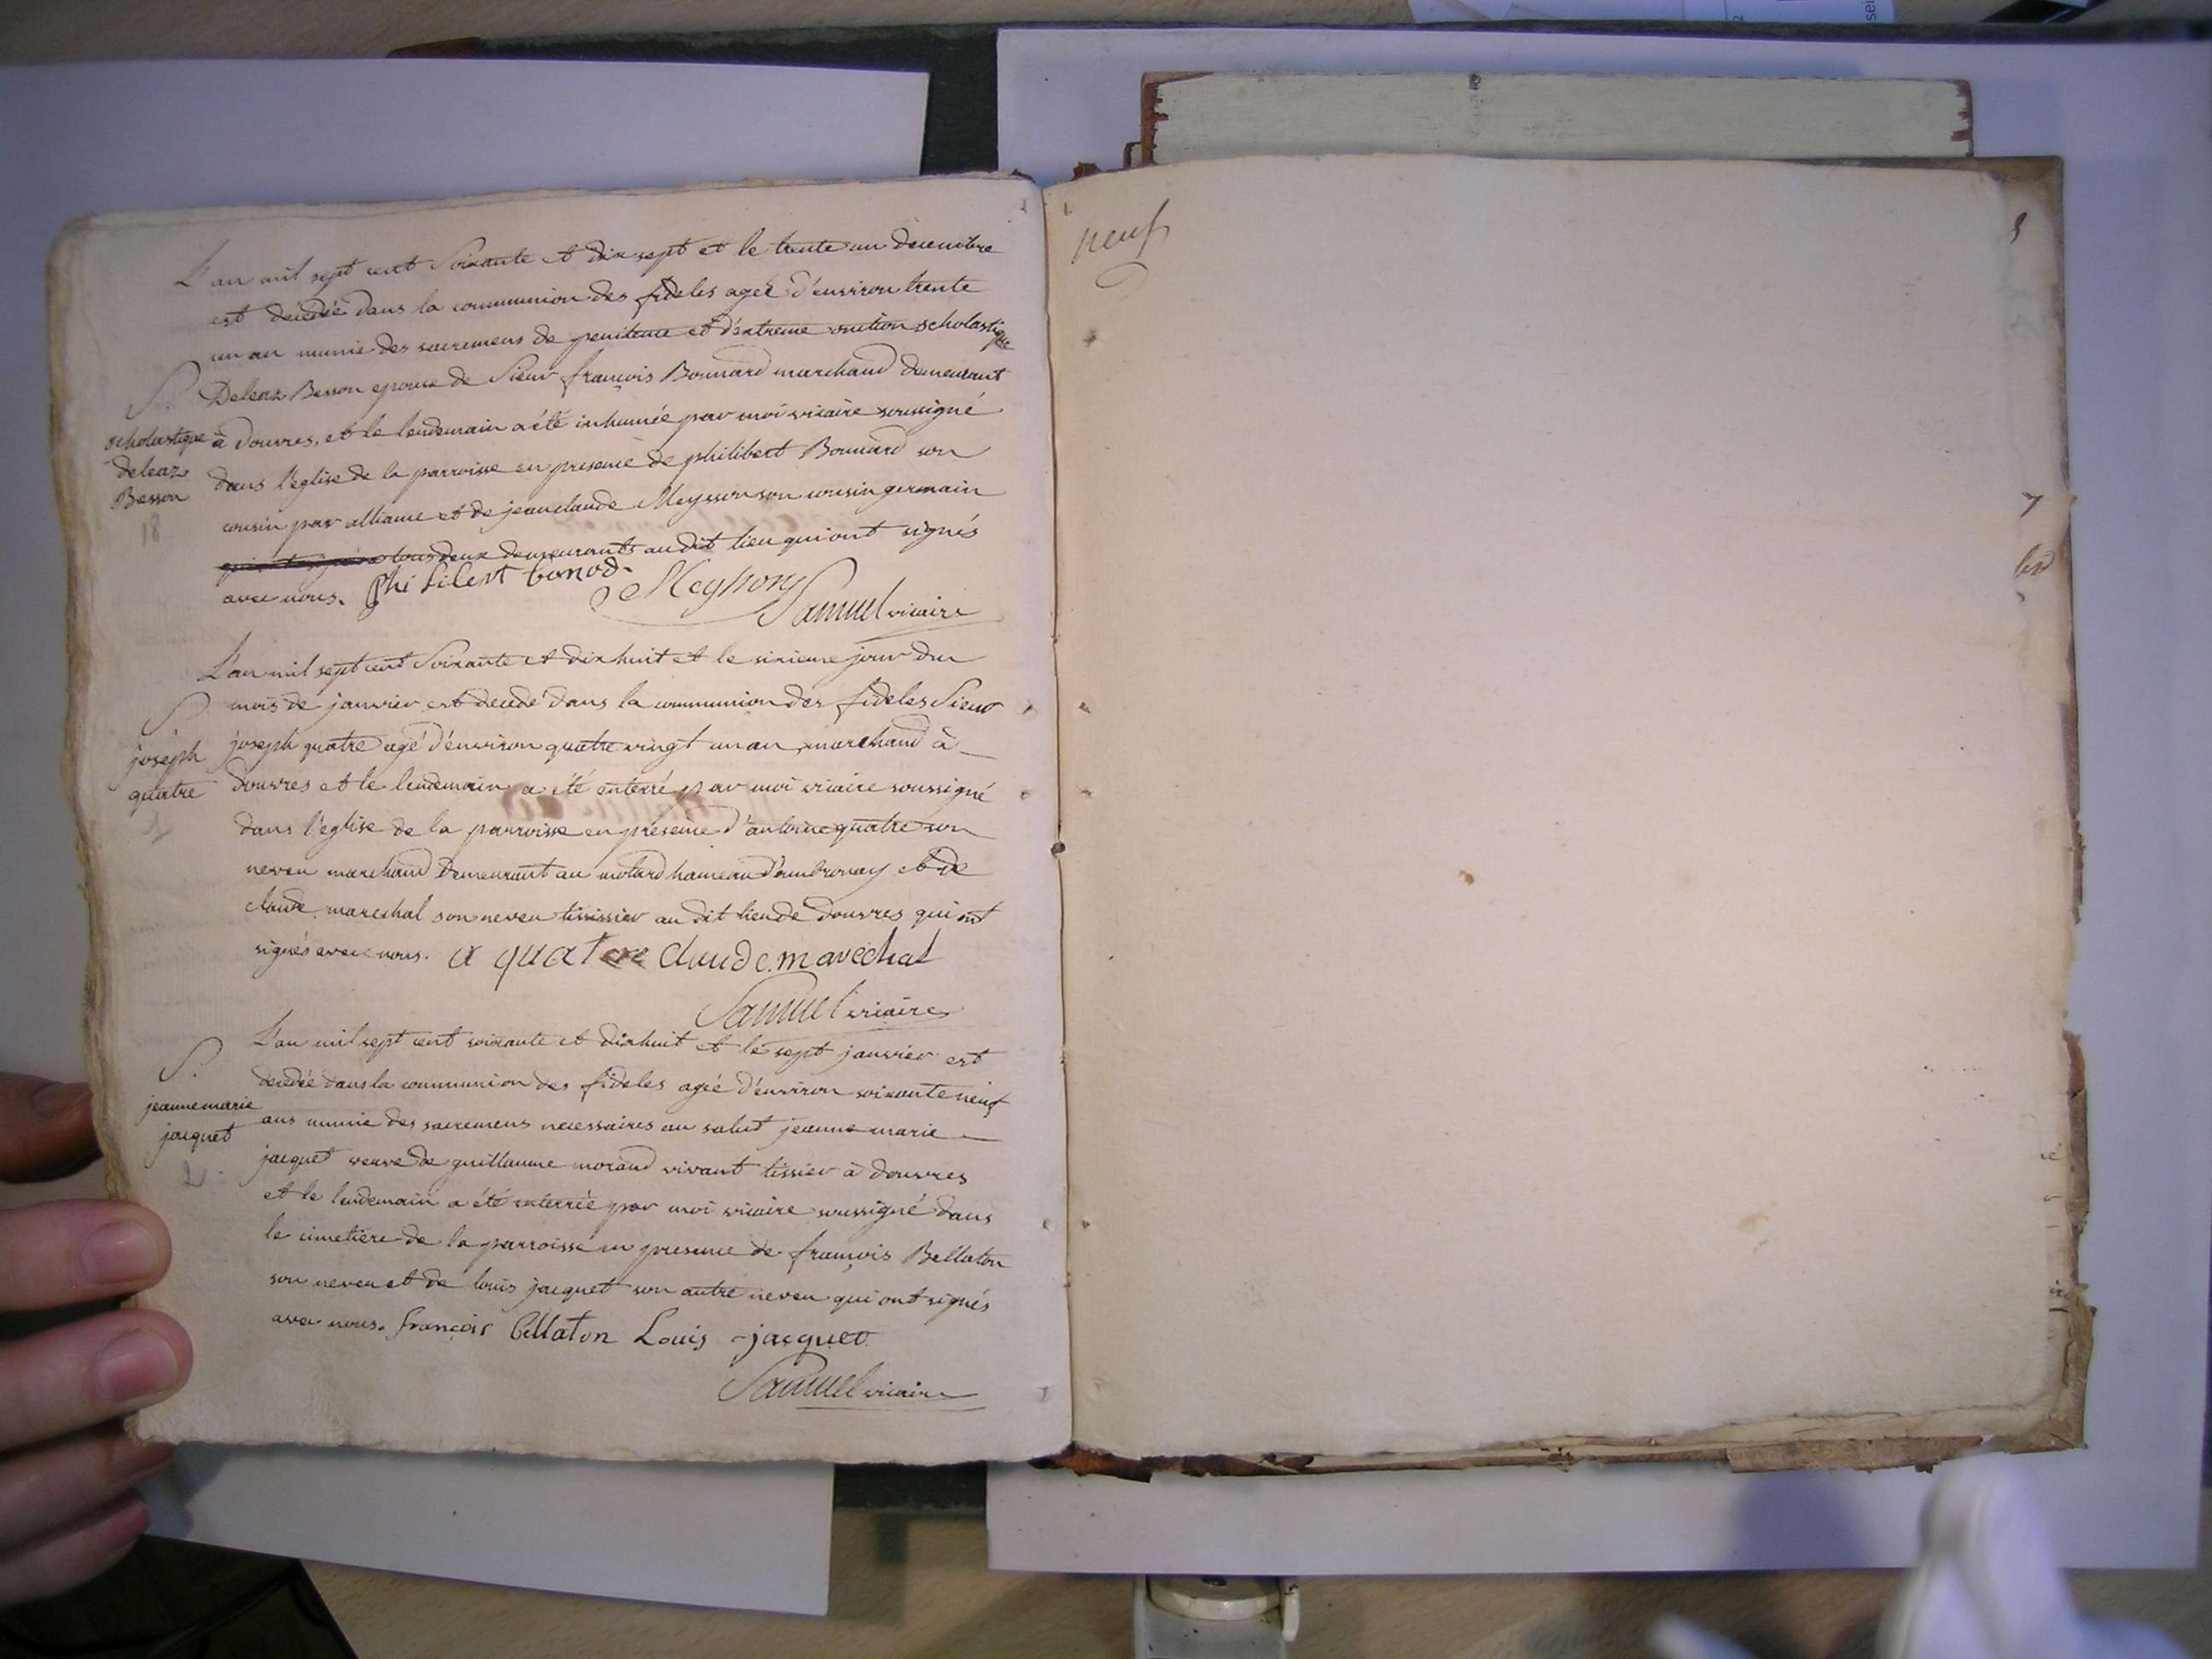 L'an mil sept cent Soixante et dix sept et le trente un decembre
est décédée dans la communion des fideles agée d'environ trente
un an munie des sacremens de penitence et d'extreme onction scholastique
S.
Deleaz Besson epouse de Sieur françois Bonnard marchand demeurant
scholastique
deleaz
Besson
18
à douvres, et le lendemain a été inhumée par moi vicaire soussigné
dans l'eglise de la parroisse en presence de philibert Bonnard son
cousin par alliance et de jean claude Meysson son cousin germain
tous deux demeurants au dit lieu qui ont signés
avec nous. Philibert bonod Meysson
Samuel vicaire
L'an mil sept cent Soixante et dix huit et le sixieme jour du
mois de janvier est decedé dans la communion des fideles Sieur
S.
joseph
quatre
1
joseph quatre agé d'environ quatre vingt un an, marchand à
douvres et le lendemain a été enterré par moi vicaire soussigné
dans l'eglise de la parroisse en présence d'antoine quatre son
neveu marchand demeurant au molard hameau d'ambronay et de
claude marechal son neveu tissier au dit lieu de douvres qui ont
signés avec nous. a quatre Claude marechal
Samuel vicaire
L'an mil sept cent soixante et dixhuit et le sept janvier est
S.
jeanne marie
jacquet
2
decedée dans la communion des fideles agée d'environ soixante neuf
ans munie des sacremens necessaires au salut jeanne marie
jacquet veuve de guillaume morand vivant tissier à douvres
et le lendemain a été enterrée par moi vicaire soussigné dans
le cimetiere de la parroisse en presence de françois Bellaton
son neveu et de louis jacquet son autre neveu qui ont signés
avec nous. françois bellaton Louis jacquet
Samuel vicaire
neuf